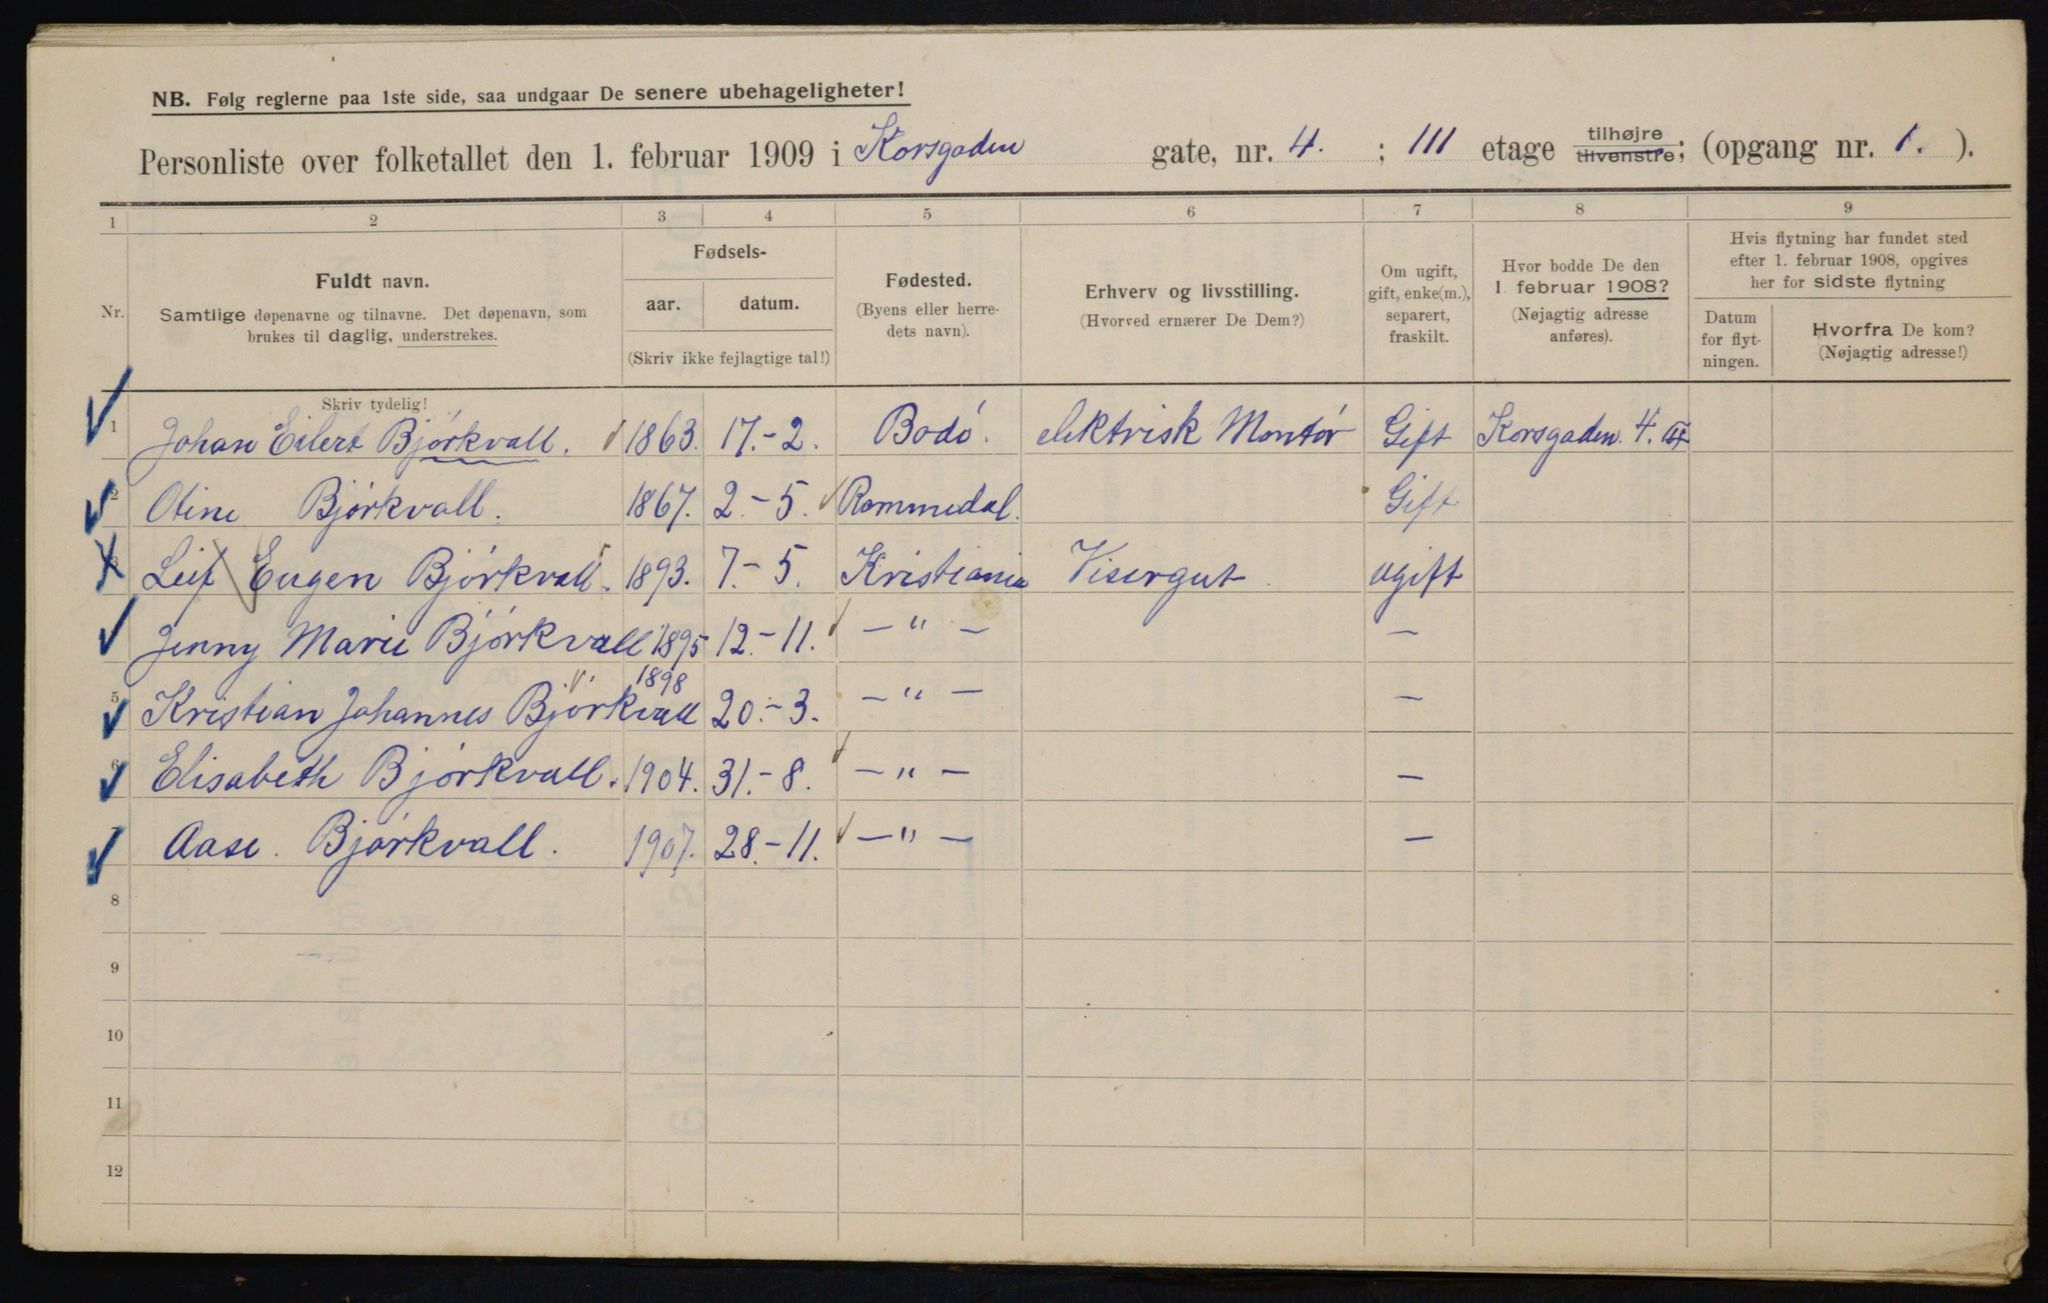 NB. Følg reglerne paa 1ste side, saa undgaar De senere ubehageligheter!
Personliste over folketallet den 1. februar 1909 i Korsgaden gate, nr. 4. ; III etage tilhøjre tilvenstre; (opgang nr. 1. ).
1 2 3 4 5 6 7 8 9
Nr.
Fuldt navn.
Samtlige døpenavne og tilnavne. Det døpenavn, som
brukes til daglig, understrekes.
Skriv tydelig!
Fødsels-
aar. datum.
(Skriv ikke fejlagtige tal!)
Fødested.
(Byens eller herre-
dets navn).
Erhverv og livsstilling.
(Hvorved ernærer De Dem?)
Om ugift,
gift, enke(m.),
separert,
fraskilt.
Hvor bodde De den
1. februar 1908?
(Nøjagtig adresse
anføres).
Hvis flytning har fundet sted
efter 1. februar 1908, opgives
her for sidste flytning
Datum
for flyt-
ningen.
Hvorfra De kom?
(Nøjagtig adresse!)
1 Johan Eilert Bjórkvall. 1863. 17.-2. Bodó. elektrisk Montór Gift Korsgaden. 4. III
2 Otine Bjórkvall. 1867. 2.-5. Rommedal. Gift
3 Leif Eugen Bjórkvall. 1893. 7.-5. Kristiania Visergut. ugift
Jenny Marie Bjórkvall 1895 12.-11. -"- -
5 Kristian Johannes Bjórkvall 1898 20.-3. -"- -
6 Elisabeth Bjórkvall. 1904. 31.-8. -"- -
7 Aase. Bjórkvall. 1907. 28.-11. -"- -
8
9
10
11
12